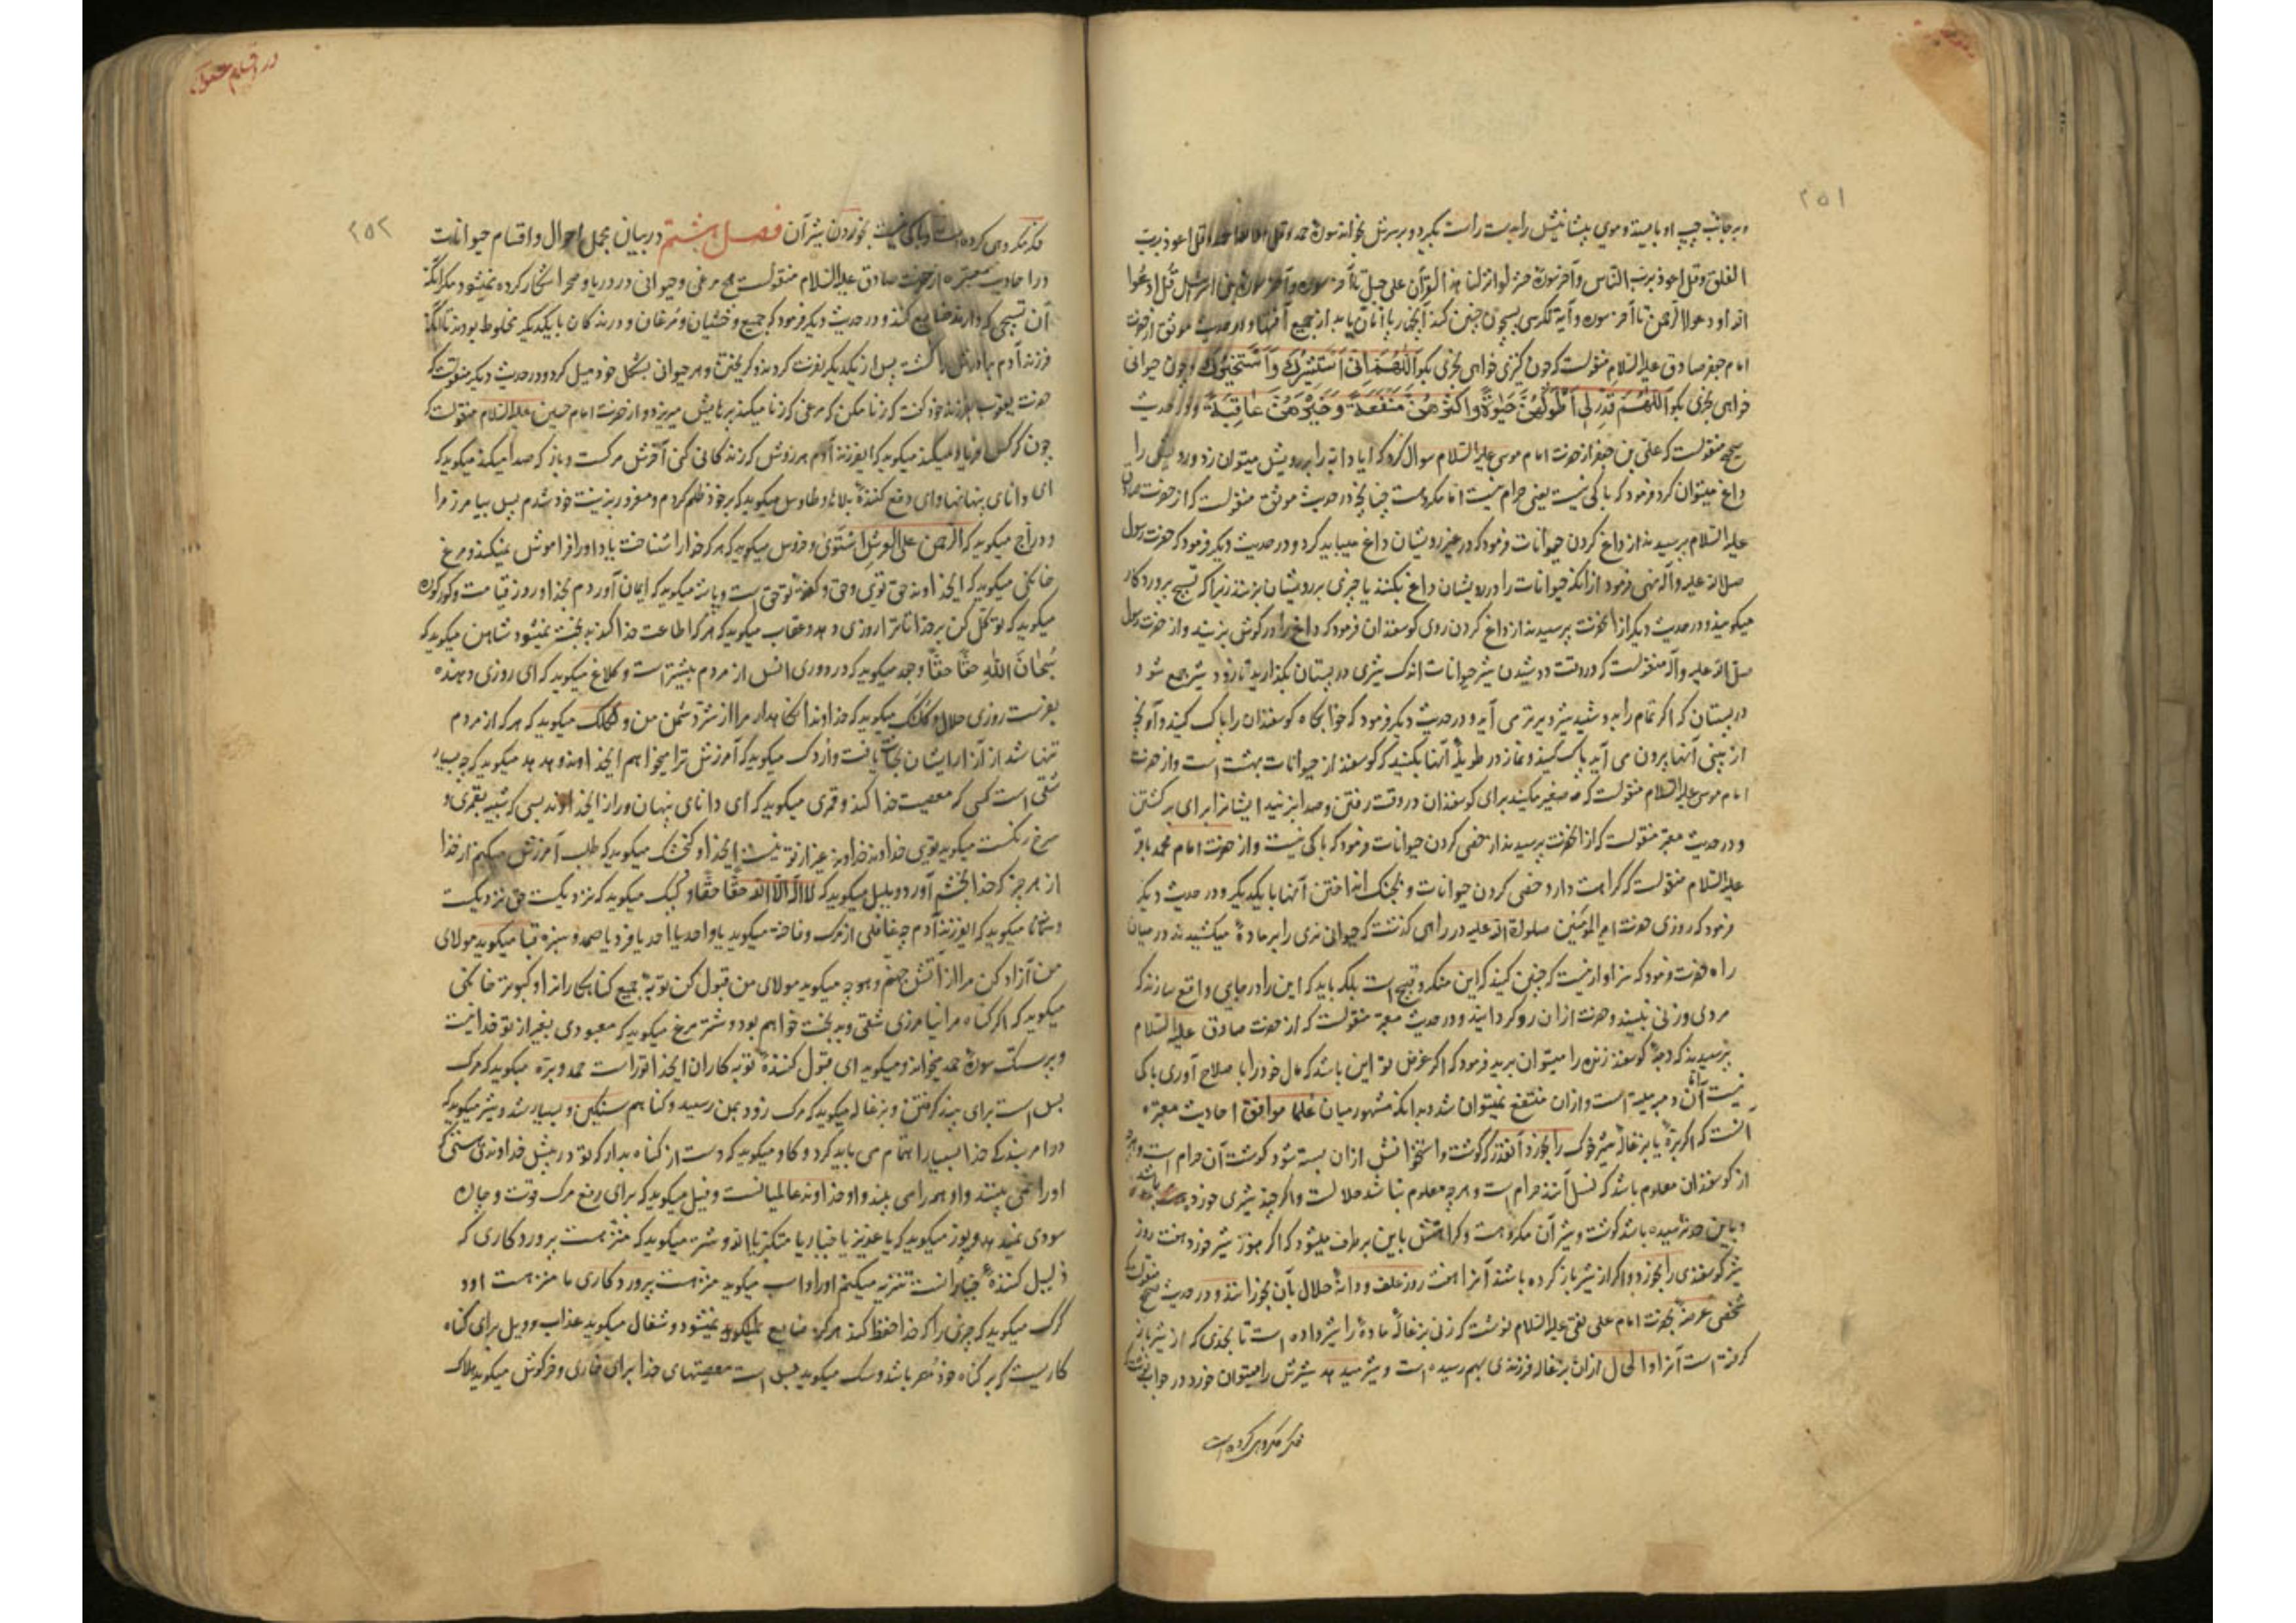 ۲۵۱
و بر جانب چپ او بایستد و موی پیشانیش را بدست راست بگیرد و بر سرش بخواند سورهٔ حمد و قل هو الله احد و قل اعوذ برب
الفلق و قل اعوذ برب الناس و آخر سورهٔ حشر لو انزلنا هذا القرآن علی جبل تا آخر سوره و آخر سورهٔ بنی اسرائیل قل ادعوا
الله او ادعوا الرحمن تا آخر سوره و آیة الکرسی پس چون چنین کند آنچهارپا امان یابد از جمیع آفتها و در حدیث موثق از حضرت
امام جعفر صادق علیه السلام منقولست که چون کنیزی خواهی بخری بگو اَللّهُمَّ اِنّی اَسْتَشیرُکَ وَ اَسْتَخیرُکَ و چون حیوانی
خواهی بخری بگو اَللّهُمَّ قَدِّرْ لی اَطْوَلَهُنَّ حَیوةً وَ اَکْثَرَهُنَّ مَنْفَعَةً وَ خَیْرَهُنَّ عاقِبَةً و در حدیث
صحیح منقولست که علی بن جعفر از حضرت امام موسی علیه السلام سوال کرد که آیا دابه را بر رویش میتوان زد و رویش را
داغ میتوان کرد فرمود که باکی نیست یعنی حرام نیست اما مکروهست چنانچه در حدیث موثق منقولست که از حضرت صادق
علیه السلام پرسیدند از داغ کردن حیوانات فرمود که در غیر رویشان داغ میباید کرد و در حدیث دیگر فرمود که حضرت رسول
صلی الله علیه و آله نهی فرمود از آنکه حیوانات را در رویشان داغ بکنند یا چیزی بر رویشان بزنند زیرا که تسبیح پروردگار
میگویند و در حدیث دیگر از آنحضرت پرسیدند از داغ کردن روی گوسفندان فرمود که داغ را در گوش بزنید و از حضرت رسول
صلی الله علیه و آله منقولست که در وقت دوشیدن شیر حیوانات اندک شیری در پستان بگذارید تا زود شیر جمع شود
در پستان که اگر تمام را بدوشید شیر دیرتر می آید و در حدیث دیگر فرمود که خوابگاه گوسفندان را پاک کنید و آنچه
از بینی آنها بیرون می آید پاک کنید و نماز در طویلهٔ آنها بکنید که گوسفند از حیوانات بهشت است و از حضرت
امام موسی علیه السلام منقولست که صفیر مکنید برای گوسفندان در وقت رفتن و صدا بزنید ایشانرا برای برگشتن
و در حدیث معتبر منقولست که از آنحضرت پرسیدند از خصی کردن حیوانات فرمود که باکی نیست و از حضرت امام محمد باقر
علیه السلام منقولست که کراهت دارد خصی کردن حیوانات و بجنگ انداختن آنها با یکدیگر و در حدیث دیگر
فرمود که روزی حضرت امیر المؤمنین صلوات الله علیه در راهی گذشتند که حیوانی نری را بر مادهٔ میکشیدند در میان
راه حضرت فرمود که سزاوار نیست که چنین کنید که این منکر و قبیح است بلکه باید که این را در جایی واقع سازند که
مردی و زنی نبیند و حضرت از آن رو گردانیدند و در حدیث معتبر منقولست که از حضرت صادق علیه السلام
پرسیدند که دنبهٔ گوسفند زنده را میتوان برید فرمود که اگر غرض تو این باشد که مال خود را با صلاح آوری باکی
نیست اما آن دنبه میته است و از آن منتفع نمیتوان شد و بدانکه مشهور میان علما موافق احادیث معتبره
آنست که اگر بره یا بزغاله شیر خوک را بخورد آنقدر که گوشت و استخوانش از آن بسته شود گوشت آن حرام است و هر چه
از گوسفندان معلوم باشد که نسل آنند حرام است و هر چه معلوم نباشد حلالست و اگر چند شیری خورده باشد
و باین حد نرسیده باشد گوشت و شیر آن مکروهست و کراهتش باین برطرف میشود که اگر هنوز شیر خورد هفت روز
شیر گوسفندی را بخورد و اگر از شیر باز کرده باشند آنرا هفت روز علف و دانهٔ حلال بآن بخورانند و در حدیث صحیح منقولست
شخصی عرضهٔ بحضرت امام علی نقی علیه السلام نوشت که زنی بزغالهٔ مادهٔ را شیر داده است تا بحدی که از شیر باز
گرفته است آنرا و الحال از آن بزغاله فرزندی بهم رسیده است و شیر میدهد شیرش را میتوان خورد در جواب نوشت که
فعل مکروهی کرده است
در اقسام حقوق
۲۵۲
فعل مکروهی کرده است و باکی نیست بخوردن شیر آن فصل هشتم در بیان مجمل احوال و اقسام حیوانات
در احادیث معتبره از حضرت صادق علیه السلام منقولست هیچ مرغی و حیوانی در دریا و صحرا شکار کرده نمیشود مگر آنکه
آن تسبیحی که دارند ضایع کنند و در حدیث دیگر فرمود که جمیع وحشیان و مرغان و درندگان با یکدیگر مخلوط بودند تا آنکه
فرزند آدم برادرش را کشت پس از یکدیگر نفرت کردند و گریختند و هر حیوانی بشکل خود میل کرد و در حدیث دیگر منقولست که
حضرت یعقوب بفرزند خود گفت که زنا مکن که مرغی که زنا میکند پرهایش میریزد و از حضرت امام حسین علیه السلام منقولست که
چون کرکس فریاد میکند میگوید که ای فرزند آدم هر روش که زندگانی کنی آخرش مرگست و باز که صدا میکند میگوید که
ای دانای پنهانیها و ای دفع کنندهٔ بلاها و طاوس میگوید که بر خود ظلم کردم و مغرور بزینت خود شدم پس بیامرز مرا
و دراج میگوید که الرحمن علی العرش استوی و خروس میگوید که هر که خدا را شناخت یاد او را فراموش نمیکند و مرغ
خانگی میگوید که ایخداوند حق تویی و حق و گفتهٔ تو حق است و باشه میگوید که ایمان آوردم بخدا و روز قیامت و کورکوره
میگوید که توکل کن بر خدا تا ترا روزی دهد و عقاب میگوید که هر که اطاعت خدا کند بدبخت نمیشود شاهین میگوید که
سُبْحانَ اللهِ حقّاً حقّاً و جغد میگوید که در دوری انس از مردم بیشتر است و کلاغ میگوید که ای روزی دهنده
بفرست روزی حلال و کلنگ میگوید که خداوندا نگاهدار مرا از شر دشمن من و لکلک میگوید که هر که از مردم
تنها شد از آزار ایشان نجات یافت و اردک میگوید که آمرزش ترا میخواهم ایخداوند و هدهد میگوید که چه بسیار
شقی است کسی که معصیت خدا کند و قمری میگوید که ای دانای پنهان و راز ایخداوند
سرخ رنگست میگوید تویی خداوند خداوند غیر از تو نیست ایخدا و گنجشک میگوید که طلب آمرزش میکنم از خدا
از هر چیز که خدا بخشم آورد و بلبل میگوید که لا اله الا الله حقا حقا و کبک میگوید که نزدیکست حق نزدیکست
و سمانا میگوید که ای فرزند آدم چه غافلی از مرگ و فاخته میگوید یا واحد یا احد یا فرد یا صمد و سبزه قبا میگوید مولای
من آزاد کن مرا از آتش جهنم و هوجه میگوید مولای من قبول کن توبهٔ جمیع گناهکاران را و کبوتر خانگی
میگوید که اگر گناه مرا نیامرزی شقی و بدبخت خواهم بود و شتر مرغ میگوید که معبودی بغیر از تو خدا نیست
و پرستک سورهٔ حمد میخواند و میگوید ای قبول کنندهٔ توبه کاران ایخدا تراست حمد و بره میگوید که مرگ
بس است برای پند گرفتن و بزغاله میگوید که مرگ زود بمن رسید و گناهم سنگین و بسیار شد و شیر میگوید که
در امر بندگی خدا بسیار اهتمام می باید کرد و گاو میگوید که دست از گناه بدار که تو در پیش خداوندی هستی که
او را نمی بینند و او همه را می بیند و او خداوند عالمیانست و فیل میگوید که برای رفع مرگ قوت و چاره
سودی نمیدهد و یوز میگوید که یا عزیز یا جبار یا متکبر یا الله و شتر میگوید که منزهست پروردگاری که
ذلیل کنندهٔ جبارانست تنزیه میکنم او را و اسب میگوید منزهست پروردگاری ما منزهست او و
گرگ میگوید که چیزی را که خدا حفظ کند هرگز ضایع نمیشود و شغال میگوید عذاب و ویل برای گناه
کاریست که بر گناه خود مصر باشد و سگ میگوید بس است معصیتهای خدا برای خواری و خرگوش میگوید هلاک